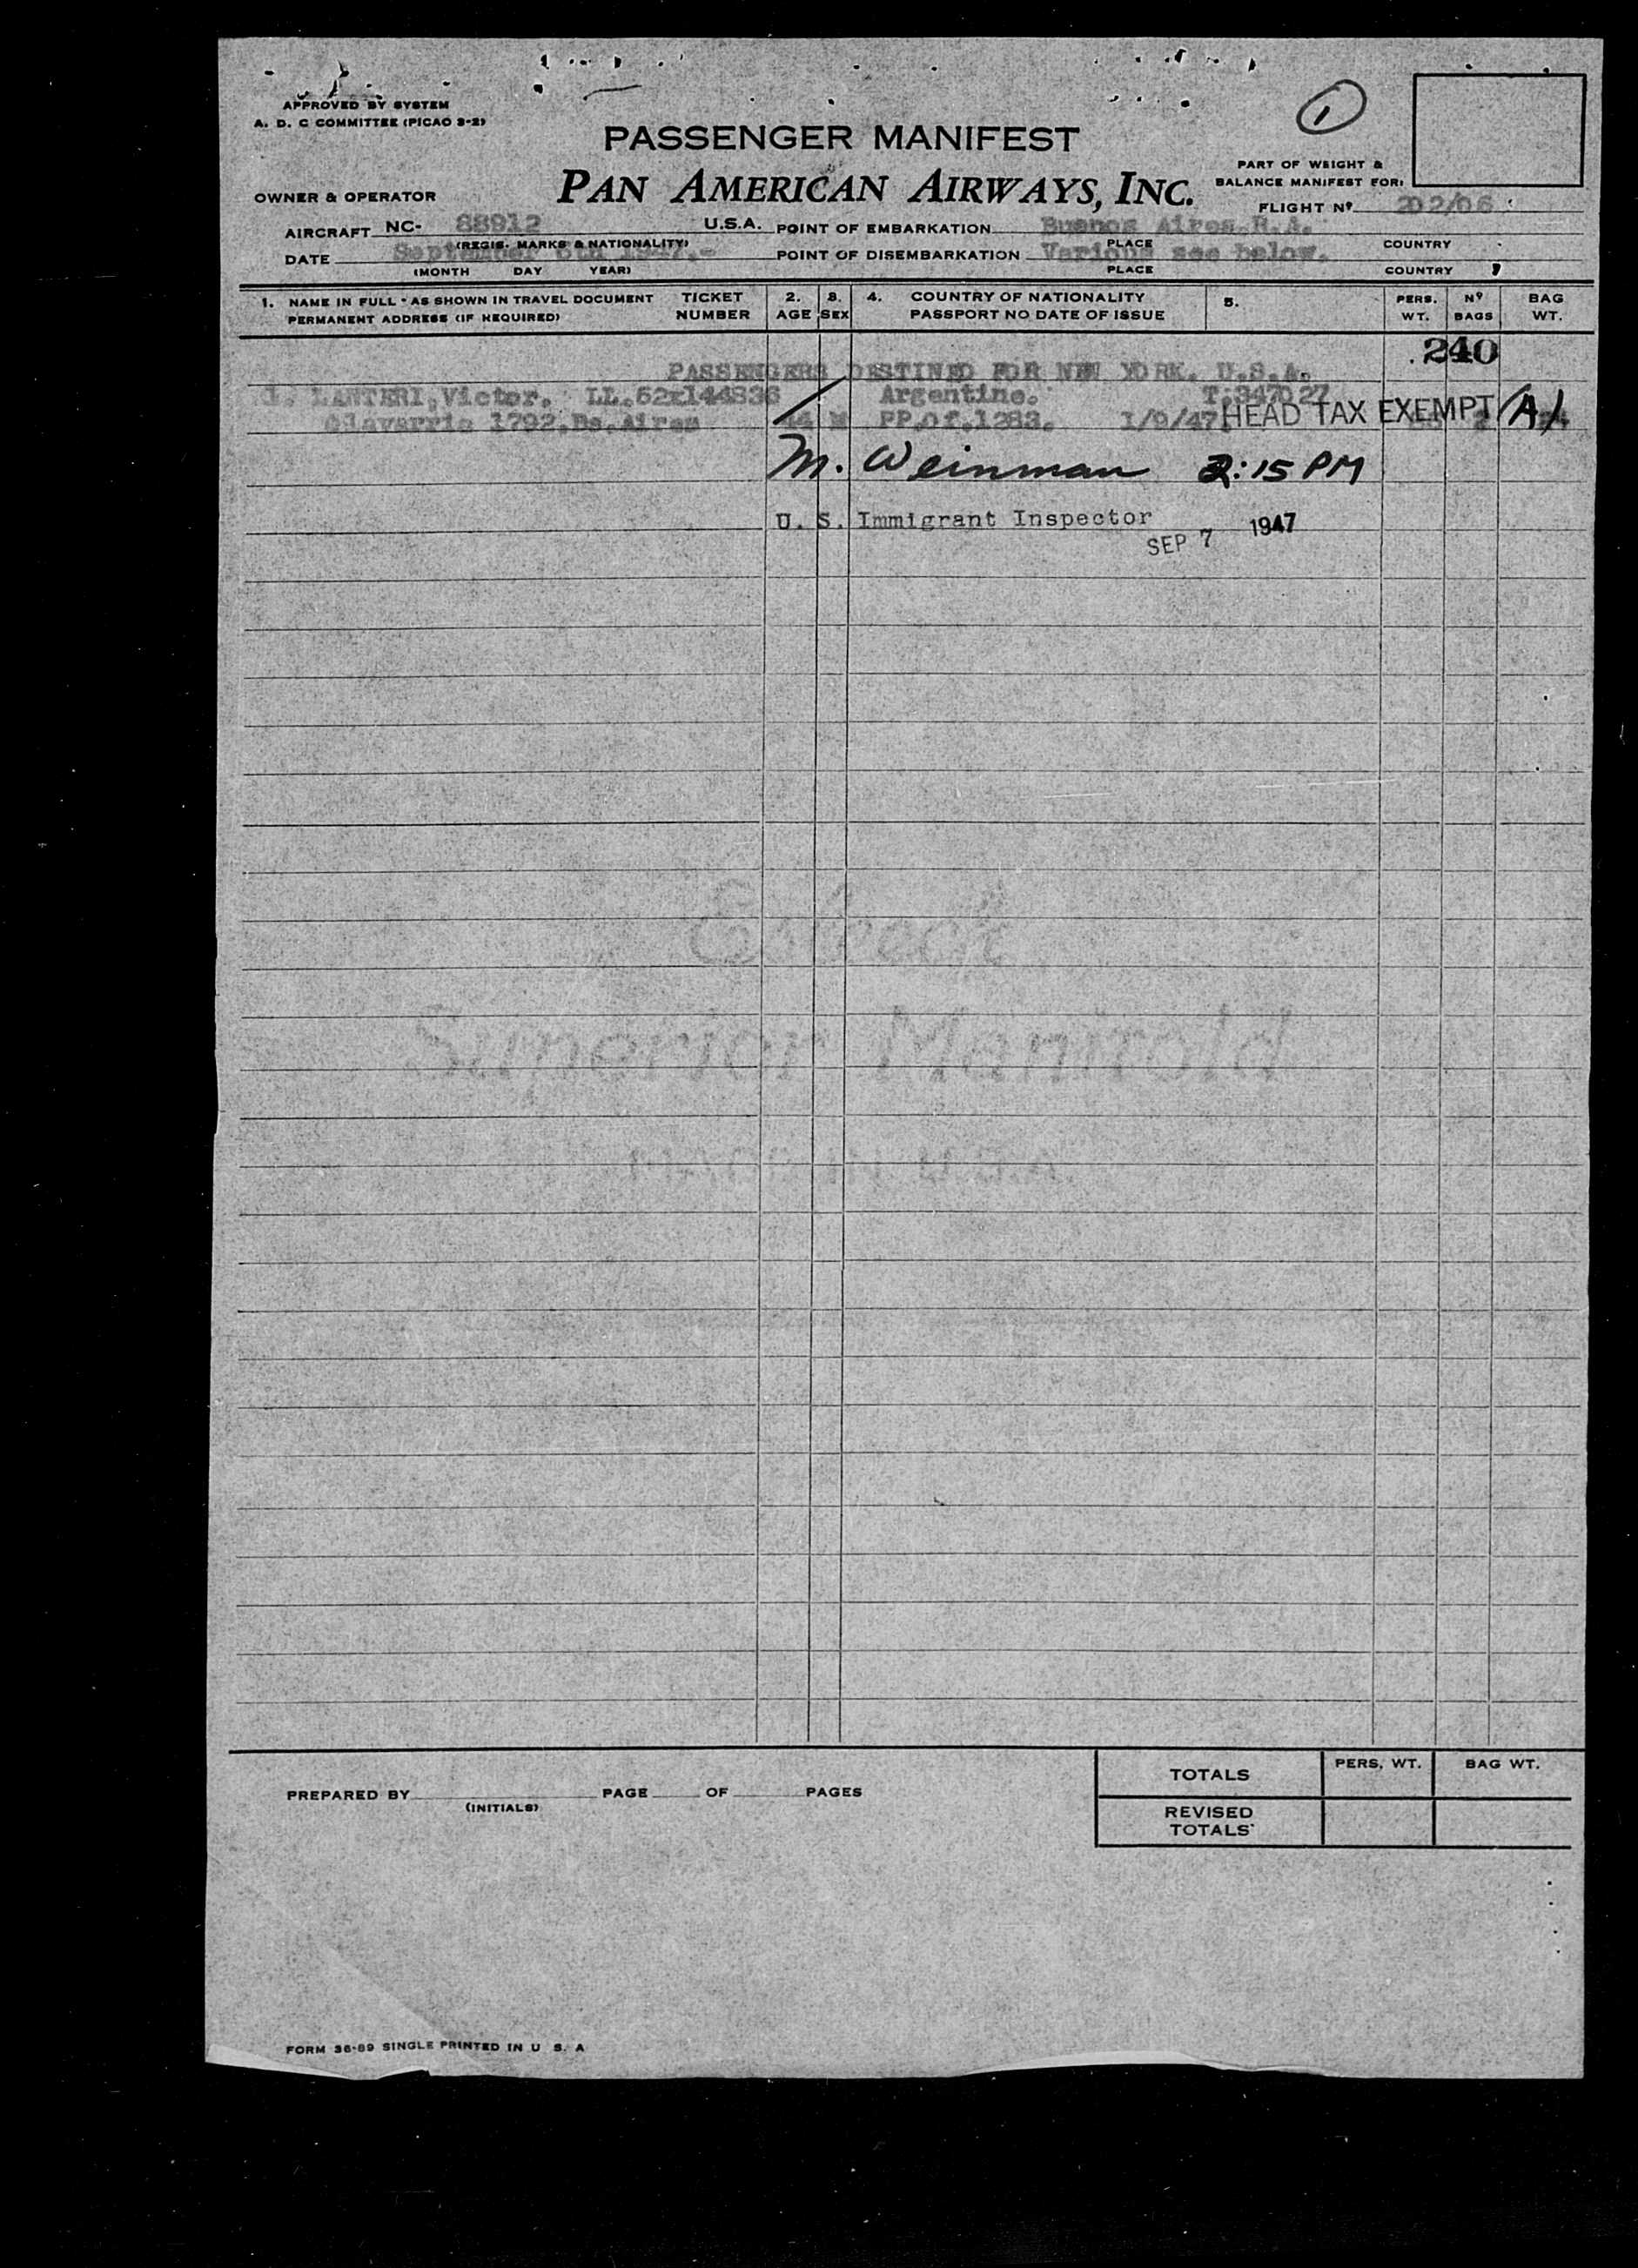 APPROVED BY SYSTEM
A. D. C COMMITTEE (PICAO 3-2)
1
PASSENGER MANIFEST
PAN AMERICAN AIRWAYS, INC.
PART OF WEIGHT &
BALANCE MANIFEST FOR:
OWNER & OPERATOR
FLIGHT Nº 202/06
AIRCRAFT NC- 88912 U.S.A. POINT OF EMBARKATION Buenos Aires.R.A.
(REGIS. MARKS & NATIONALITY) PLACE COUNTRY
DATE September 6th 1947.- POINT OF DISEMBARKATION Various see below.
(MONTH DAY YEAR) PLACE COUNTRY
1. NAME IN FULL - AS SHOWN IN TRAVEL DOCUMENT TICKET 2. 3. 4. COUNTRY OF NATIONALITY 5. PERS. Nº BAG
PERMANENT ADDRESS (IF REQUIRED) NUMBER AGE SEX PASSPORT NO DATE OF ISSUE WT. BAGS WT.
240
PASSENGERS DESTINED FOR NEW YORK. U.S.A.
1. LANTERI,Victor. LL.62x144836 Argentine. T:347027
1792.Bs.Aires 44 M PP.Of.1283. 1/9/47. HEAD TAX EXEMPT (A)
M. Weinman 2:15 PM
U. S. Immigrant Inspector
SEP 7 1947
Esleeck
Superior Manifold
MADE IN U.S.A.
TOTALS PERS. WT. BAG WT.
PREPARED BY PAGE OF PAGES
(INITIALS)
REVISED
TOTALS
FORM 36-89 SINGLE PRINTED IN U S. A